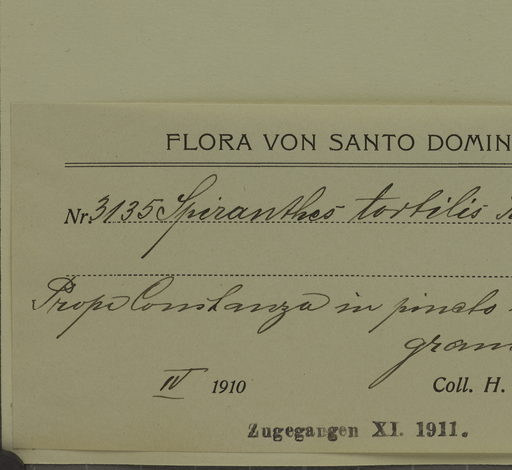 FLORA VON SANTO DOMIN
Nr. 3135 Spiranthes tortilis
Prope Constanza in pineto
gram
IV 1910 Coll. H.
Zugegangen XI. 1911.